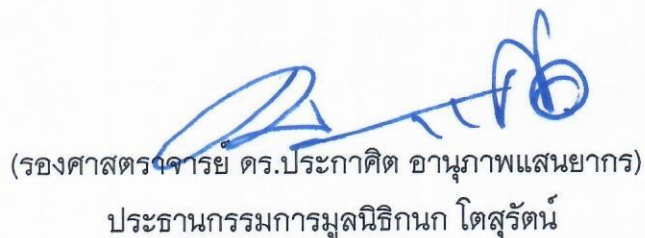 (รองศาสตราจารย์ ดร.ประกาศิต อานุภาพแสนยากร)
ประธานกรรมการมูลนิธิกนก โตสุรัตน์